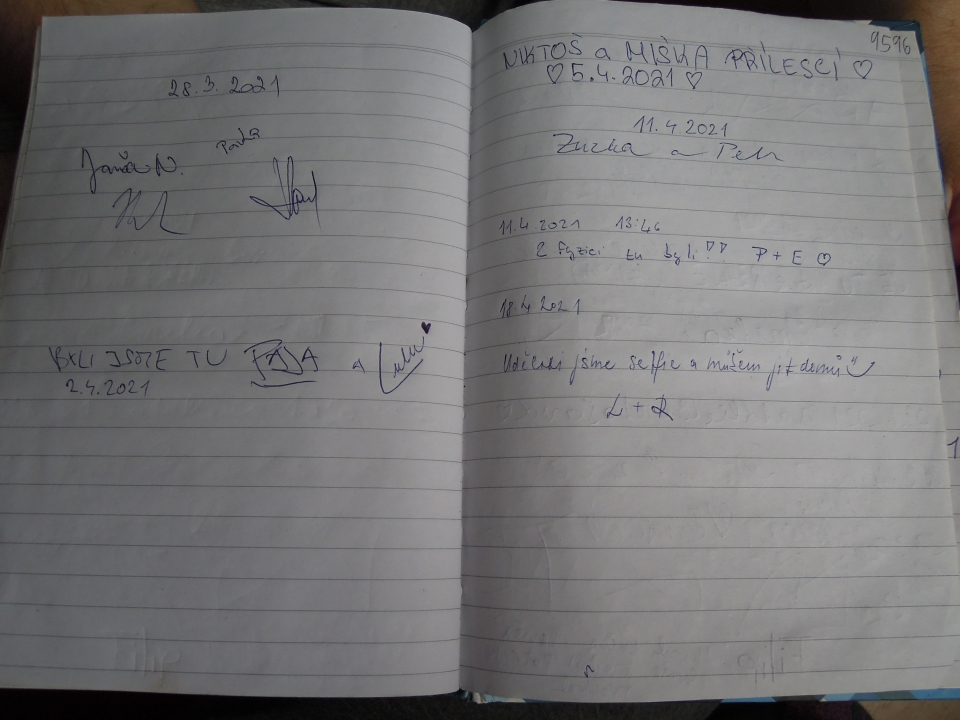 28.3.2021
Pavla
Jana N.
BYLI JSME TU PAJA A Lulu
2.4.2021
9596
NIKTOŠ a MIŠKA PŘÍLESCÍ ♡
♡ 5.4.2021 ♡
11.4.2021
Zuzka a Petr
11.4.2021 13:46
2 fyzici tu byli!! P + E ♡
18.4.2021
Udělali jsme selfie a můžem jít domů
L + R